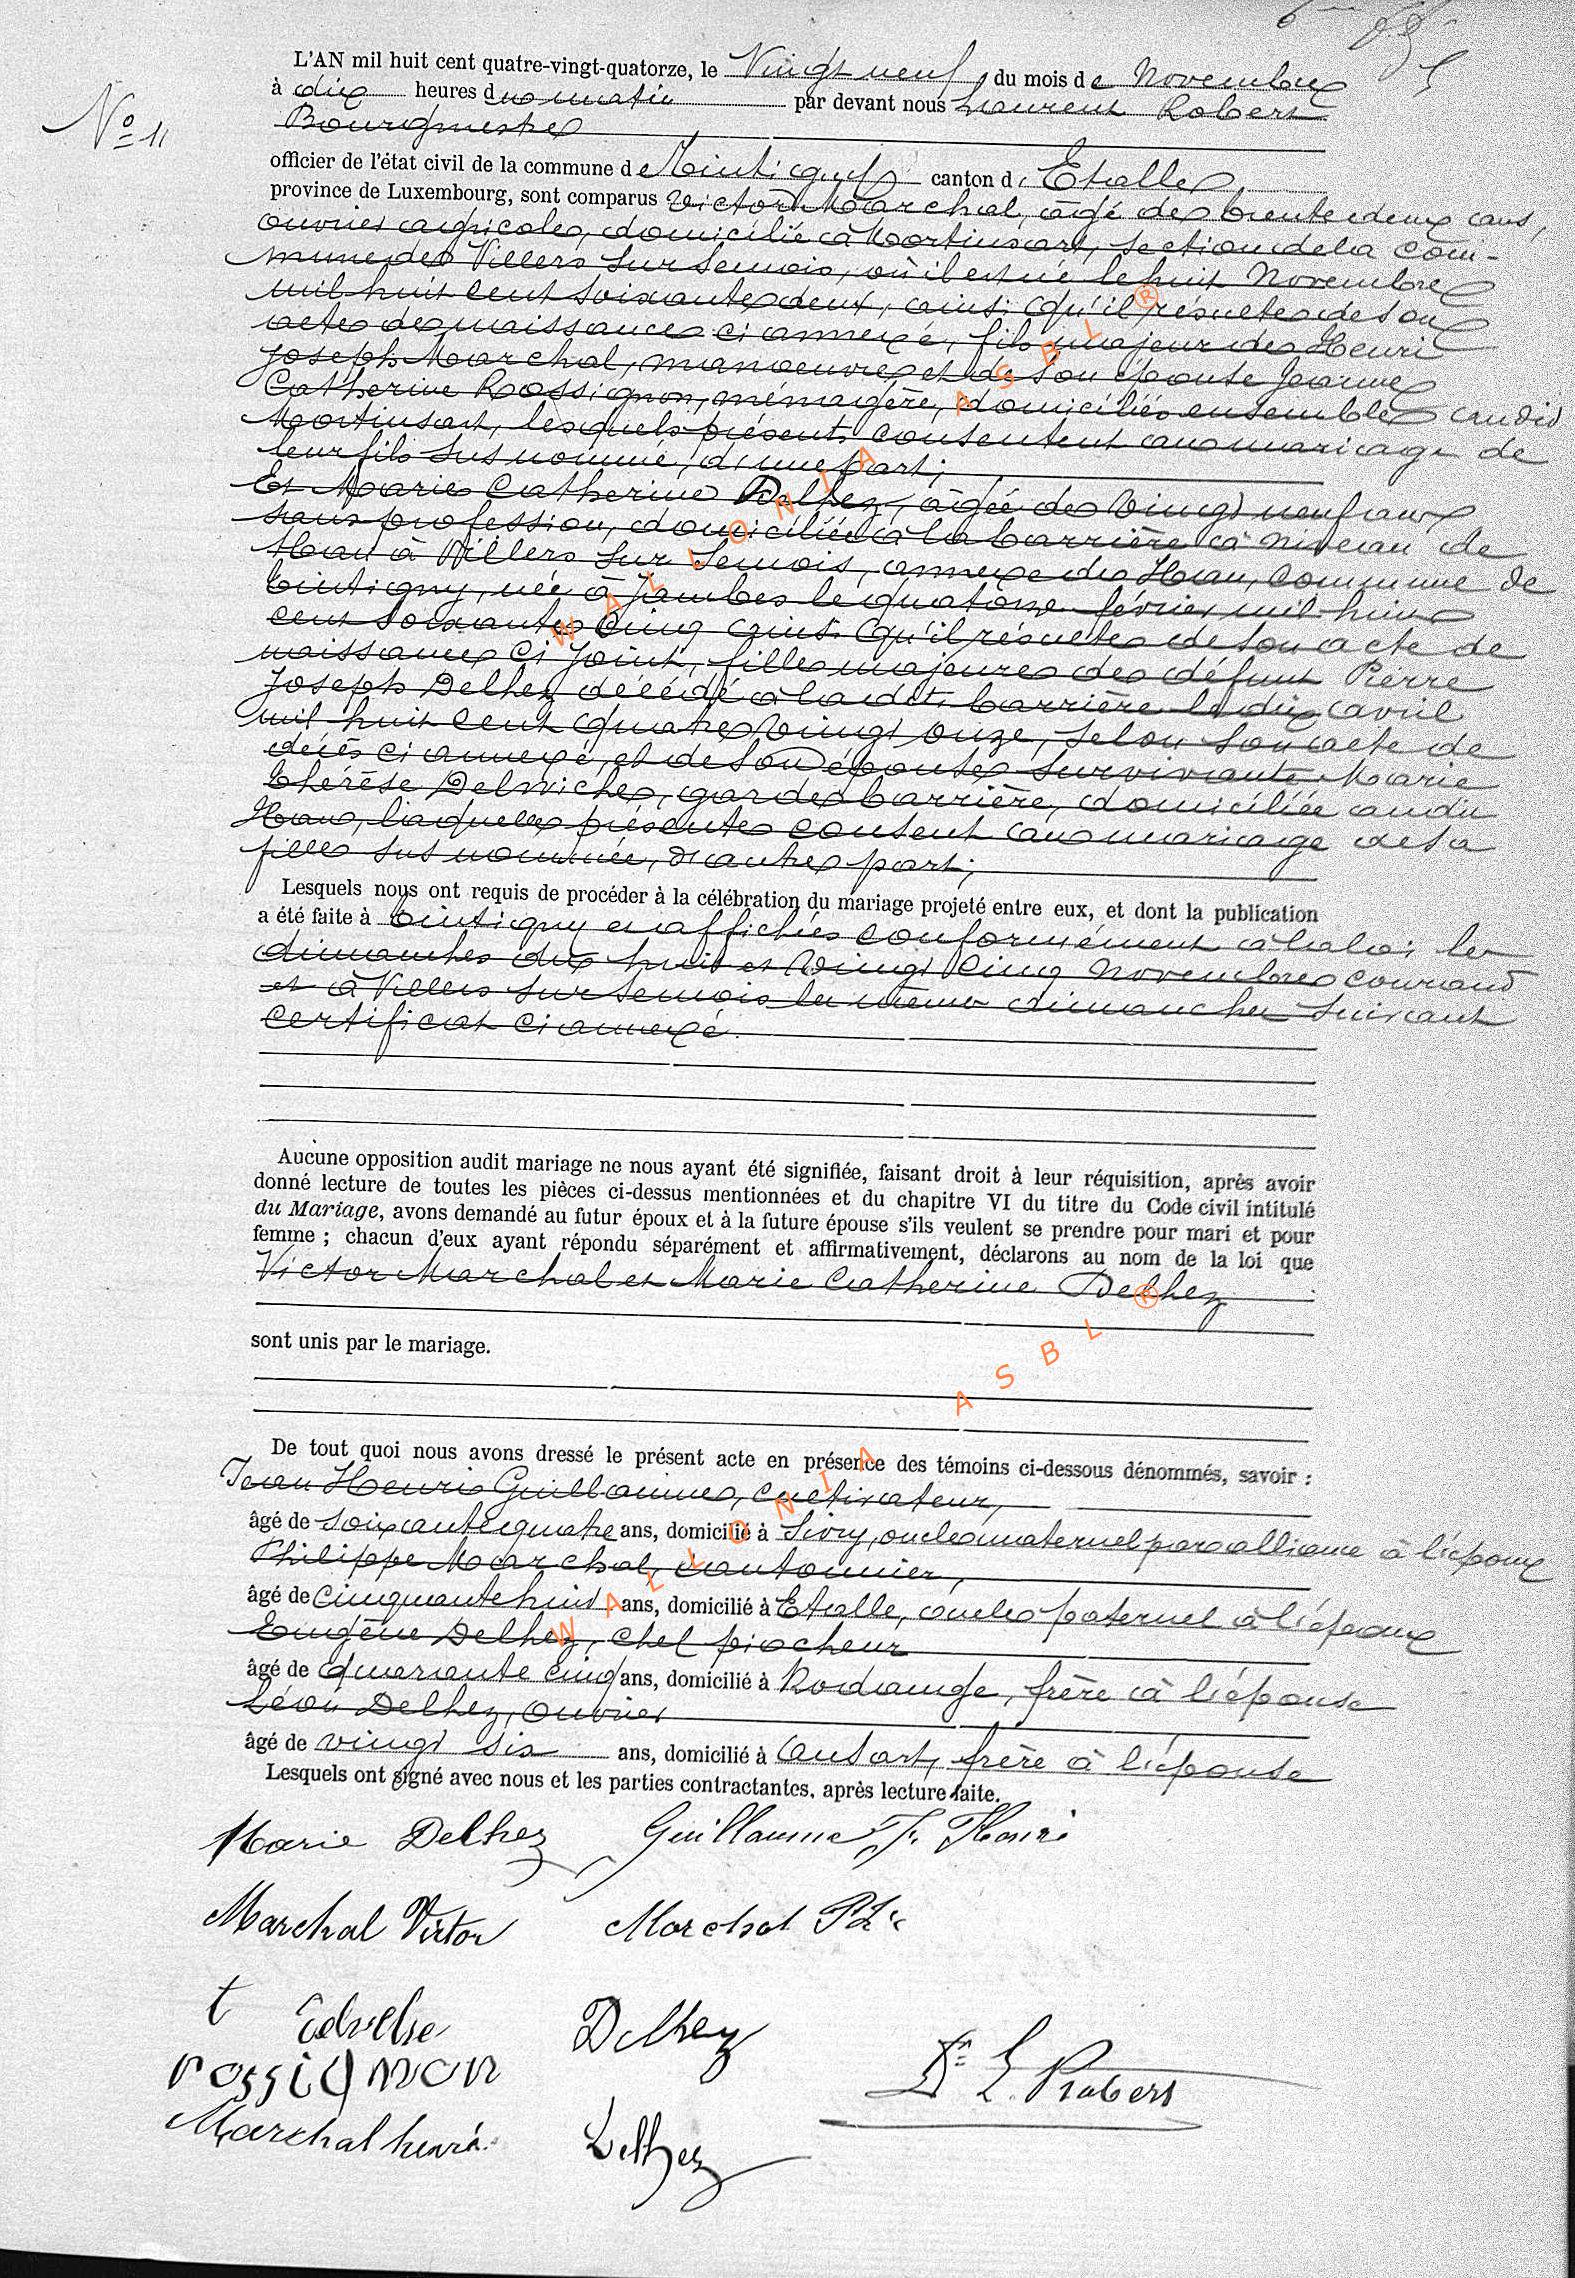 N° 11
L'AN mil huit cent quatre-vingt-quatorze, le Vingt neuf, du mois de Novembre
à dix heures du matin par devant nous Laurent Robert
Bourgmestre
officier de l'état civil de la commune de Tintigny canton d'Etalle,
province de Luxembourg, sont comparus Victor Marchal, âgé de trente deux ans,
ouvrier agricole, domicilié à Mortinsart, section de la com-
mune de Villers sur Semois, où il est né le huit Novembre
mil huit cent soixante deux, ainsi qu'il résulte de son
acte de naissance ci annexé, fils majeur de Henri
Joseph Marchal, manoeuvre et de son épouse Jeanne
Catherine Rossignon, ménagère, domiciliés ensemble audit
Mortinsart, lesquels présents consentent au mariage de
leur fils sus nommé, d'une part;
Et Marie Catherine Delhez, âgée de vingt neuf ans
sans profession, domiciliée à la barrière à niveau de
Han à Villers sur Semois, annexe de Han, commune de
Tintigny, née à Jambes le quatorze février mil huit
cent soixante cinq ainsi qu'il résulte de son acte de
naissance ci joint, fille majeure de défunt Pierre
Joseph Delhez décédé à la dite barrière le dix avril
mil huit cent quatre vingt onze, selon son acte de
décès ci annexé, et de son épouse survivante Marie
Thérèse Delwiche, garde barrière, domiciliée audit
Han, laquelle présente consent au mariage de sa
fille sus nommée, d'autre part;
Lesquels nous ont requis de procéder à la célébration du mariage projeté entre eux, et dont la publication
a été faite à Tintigny et affichée conformément à la loi les
dimanches dix huit et vingt cinq Novembre courant
et à Villers sur Semois les mêmes dimanches suivant
certificat ci annexé.
Aucune opposition audit mariage ne nous ayant été signifiée, faisant droit à leur réquisition, après avoir
donné lecture de toutes les pièces ci-dessus mentionnées et du chapitre VI du titre du Code civil intitulé
du Mariage, avons demandé au futur époux et à la future épouse s'ils veulent se prendre pour mari et pour
femme ; chacun d'eux ayant répondu séparément et affirmativement, déclarons au nom de la loi que
Victor Marchal et Marie Catherine Delhez
sont unis par le mariage.
De tout quoi nous avons dressé le présent acte en présence des témoins ci-dessous dénommés, savoir :
Jean Henri Guillaume, cultivateur,
âgé de soixante quatre ans, domicilié à Sivry, oncle maternel par alliance à l'époux
Philippe Marchal, cantonnier,
âgé de cinquante huit ans, domicilié à Etalle, oncle paternel à l'époux
Eugène Delhez, chef piocheur
âgé de quarante cinq ans, domicilié à Rodange, frère à l'épouse
Léon Delhez, ouvrier
âgé de vingt six ans, domicilié à Ansart, frère à l'épouse
Lesquels ont signé avec nous et les parties contractantes, après lecture faite.
Marie Delhez Guillaume J. Henri
Marchal Victor Marchal Ph
t Delhez
rossignon Dr L. Robert
Marchal henri Delhez
WALLONIA ASBL ®
WALLONIA ASBL ®